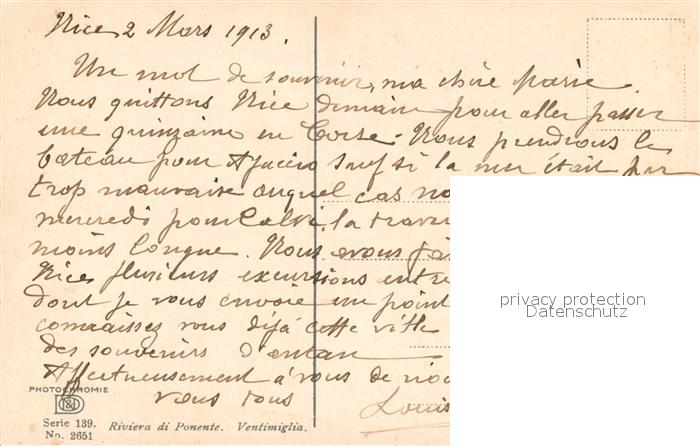 Nice 2 Mars 1913.
Un mot de souvenir, ma chère Marie.
Nous quittons Nice demain pour aller passer
une quinzaine en Corse. Nous prendrons le
bateau pour Ajaccio sauf si la mer était par
trop mauvaise auquel cas no
mercredi pour Calvi, la traver
moins longue. Nous avons fai
Nice plusieurs excursions entre
dont je vous envoie un point
connaissez vous déjà cette ville
des souvenirs d'antan
Affectueusement à vous de no
vous tous
Louis
privacy protection
Datenschutz
PHOTOCHROMIE
Serie 139. Riviera di Ponente. Ventimiglia.
No. 2651